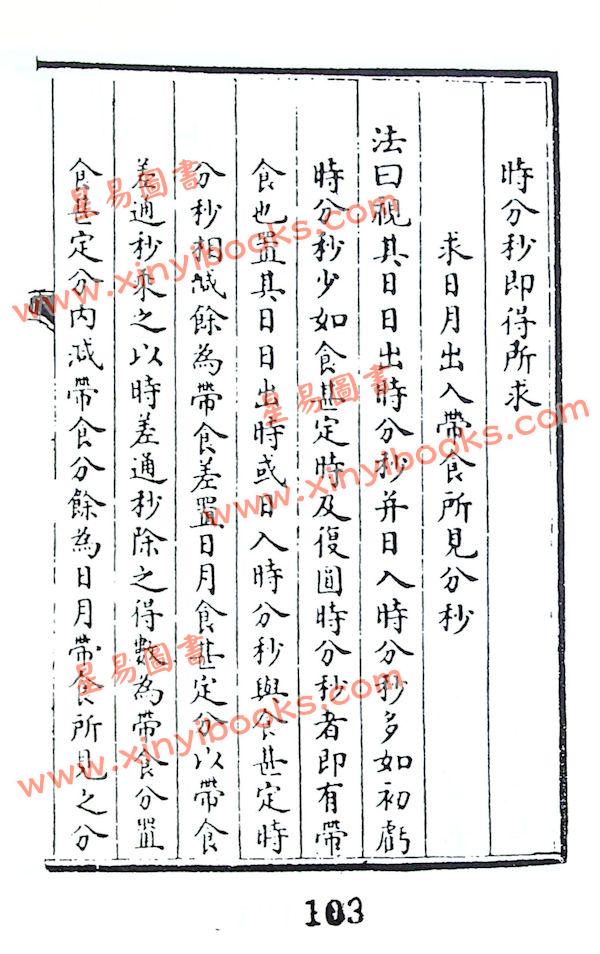 時分秒即得所求
求日月出入帶食所見分秒
法曰視其日日出時分秒并日入時分秒多如初虧
時分秒少如食甚定時及復圓時分秒者即有帶
食也置其日日出時或日入時分秒與食甚定時
分秒相減餘為帶食差置日月食甚定分以帶食
差通秒乘之以時差通秒除之得數為帶食分置
食甚定分內減帶食分餘為日月帶食所見之分
103
星易圖書
www.xinyibooks.com
星易圖書
www.xinyibooks.com
星易圖書
www.xinyibooks.com